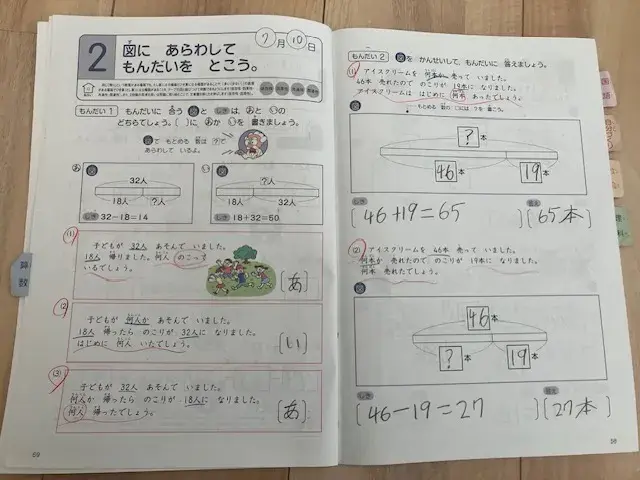 2
図に あらわして
もんだいを とこう。
7月10日
もんだい1 もんだいに 合う 図と しきは、あと いの
どちらでしょう。( )に あか いを 書きましょう。
図で もとめる 数は ?で
あらわして いるよ。
あ 図
32人
18人 ?人
しき 32-18=14
い 図
?人
18人 32人
しき 18+32=50
(1)
子どもが 32人 あそんで いました。
18人 帰りました。何人 のこって
いるでしょう。
(あ)
(2)
子どもが 何人か あそんで いました。
18人 帰ったら のこりが 32人に なりました。
はじめに 何人 いたでしょう。
(い)
(3)
子どもが 32人 あそんで いました。
何人か 帰ったら のこりが 18人に なりました。
何人 帰ったでしょう。
(あ)
算数
69
もんだい2 図を かんせいして、もんだいに 答えましょう。
(1) アイスクリームを 何本か 売って いました。
46本 売れたので のこりが 19本に なりました。
アイスクリームは はじめに 何本 あったでしょう。
図
もとめる 数の □には ?を 書こう。
?本
46本 19本
しき 答え
(46+19=65)(65本)
(2) アイスクリームを 46本 売って いました。
何本か 売れたので のこりが 19本に なりました。
何本 売れたでしょう。
図
46本
?本 19本
しき 答え
(46-19=27)(27本)
国語